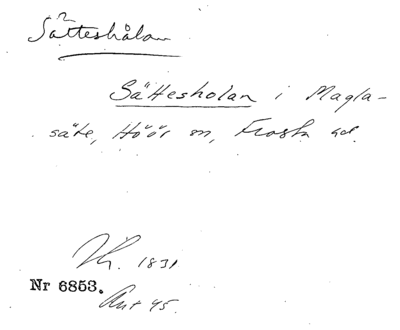 Sätteshålan
Sättesholan i Magla-
säte, Höör sn, Frosta hd.
1831
Nr 6853.
Ant 45.